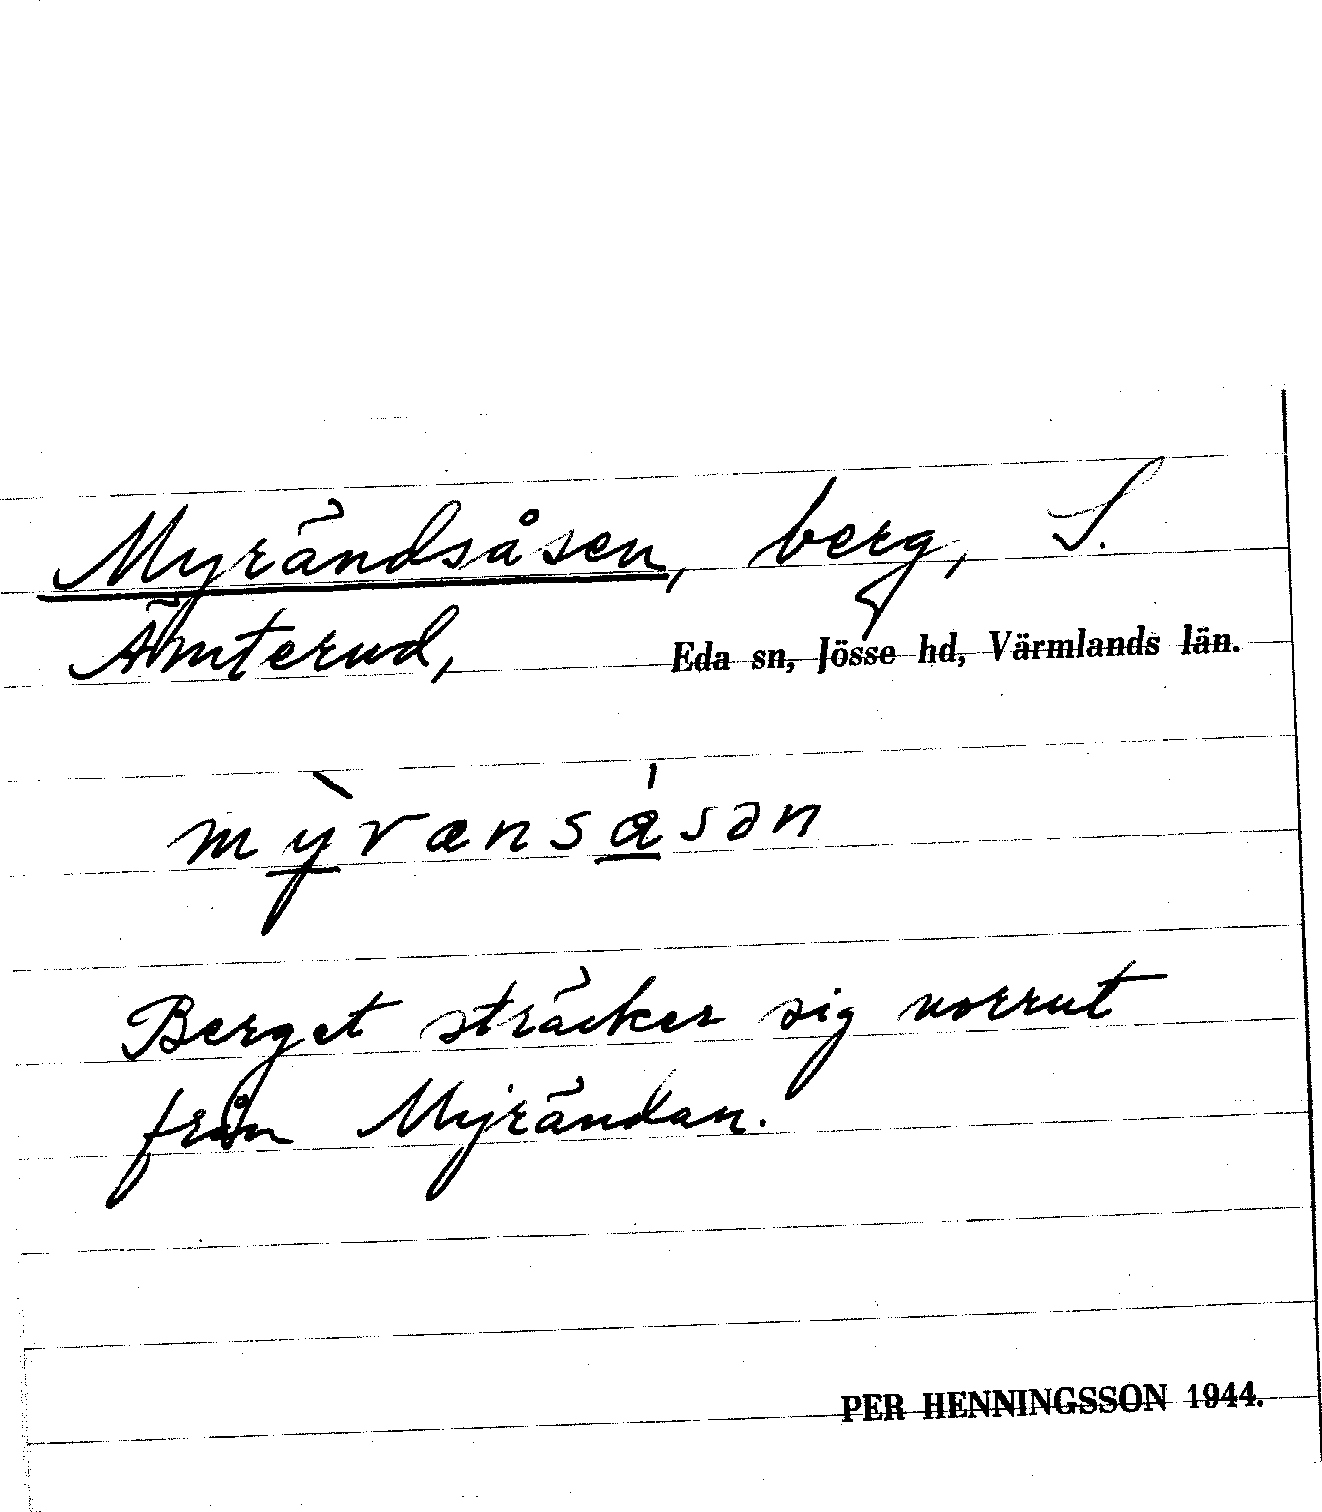 Myrändsåsen, berg, S.
Ämterud, Eda sn, Jösse hd, Värmlands län.
mỳrænsåsən
Berget sträcker sig norrut
från Myrändan.
PER HENNINGSSON 1944.